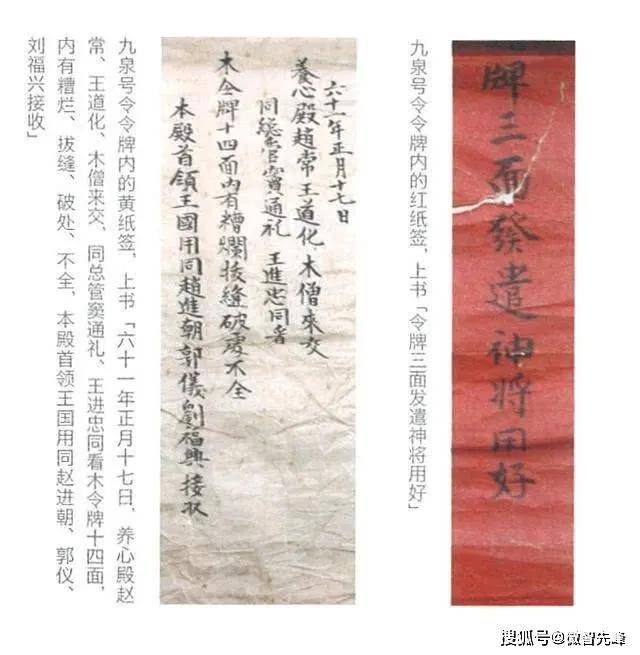 牌三面發遣神將用好
九泉号令令牌内的红纸签，上书「令牌三面发遣神将用好」
六十一年正月十七日
養心殿趙常王道化木僧來交
同總管竇通礼 王進忠同看
木令牌十四面內有糟爛拔縫破處不全
本殿首領王國用同趙進朝郭儀劉福興接収
九泉号令令牌内的黄纸签，上书「六十一年正月十七日，养心殿赵
常、王道化、木僧来交，同总管窦通礼、王进忠同看木令牌十四面，
内有糟烂、拔缝、破处、不全，本殿首领王国用同赵进朝、郭仪、
刘福兴接收」
搜狐号@微智先峰